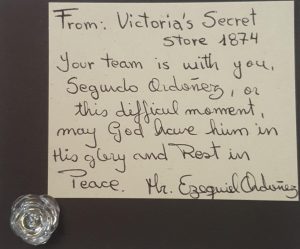 From: Victoria's Secret
Store 1874
Your team is with you,
Segundo Ordoñez, or
this difficul moment,
may God have him in
His glory and Rest in
Peace. Mr. Ezequiel Ordoñez